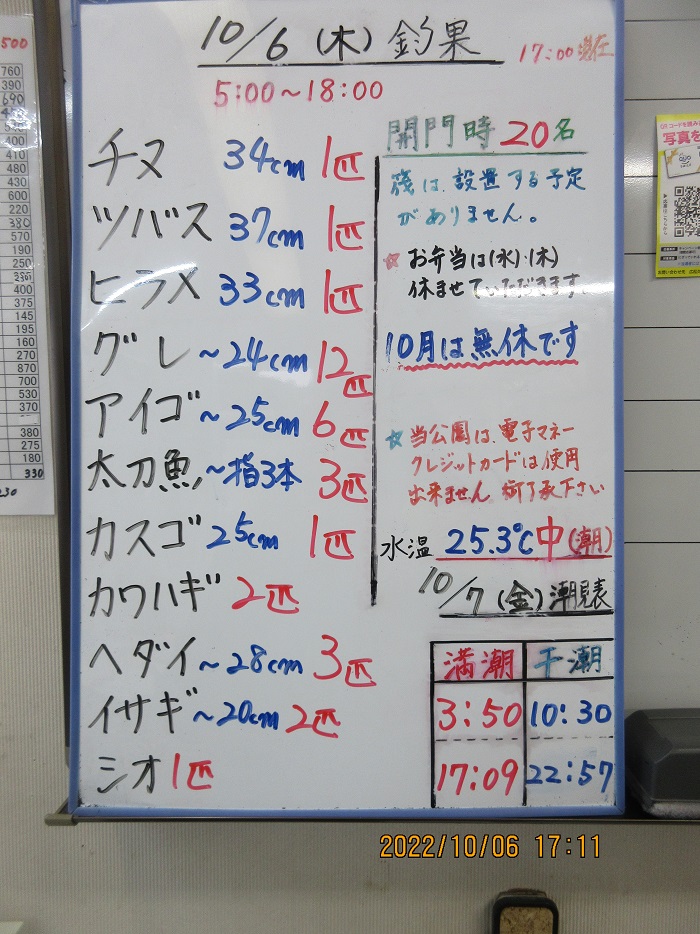 10/6 (木) 釣果
17:00 現在
5:00～18:00
チヌ 34cm 1匹
ツバス 37cm 1匹
ヒラメ 33cm 1匹
グレ ～24cm 12匹
アイゴ ～25cm 6匹
太刀魚 ～指3本 3匹
カスゴ 25cm 1匹
カワハギ 2匹
ヘダイ ～28cm 3匹
イサギ ～20cm 2匹
シオ 1匹
開門時 20名
筏は、設置する予定
がありません。
☆ お弁当は(水)・(木)
休ませていただきます。
10月は無休です
☆ 当公園は、電子マネー
クレジットカードは使用
出来ません。御了承下さい
水温 25.3℃ 中(潮)
10/7 (金) 潮見表
満潮 干潮
3:50 10:30
17:09 22:57
500
760
390
690
410
480
430
600
220
380
570
190
250
400
375
145
195
160
270
870
700
530
370
380
275
180
330
230
写真を
2022/10/06 17:11